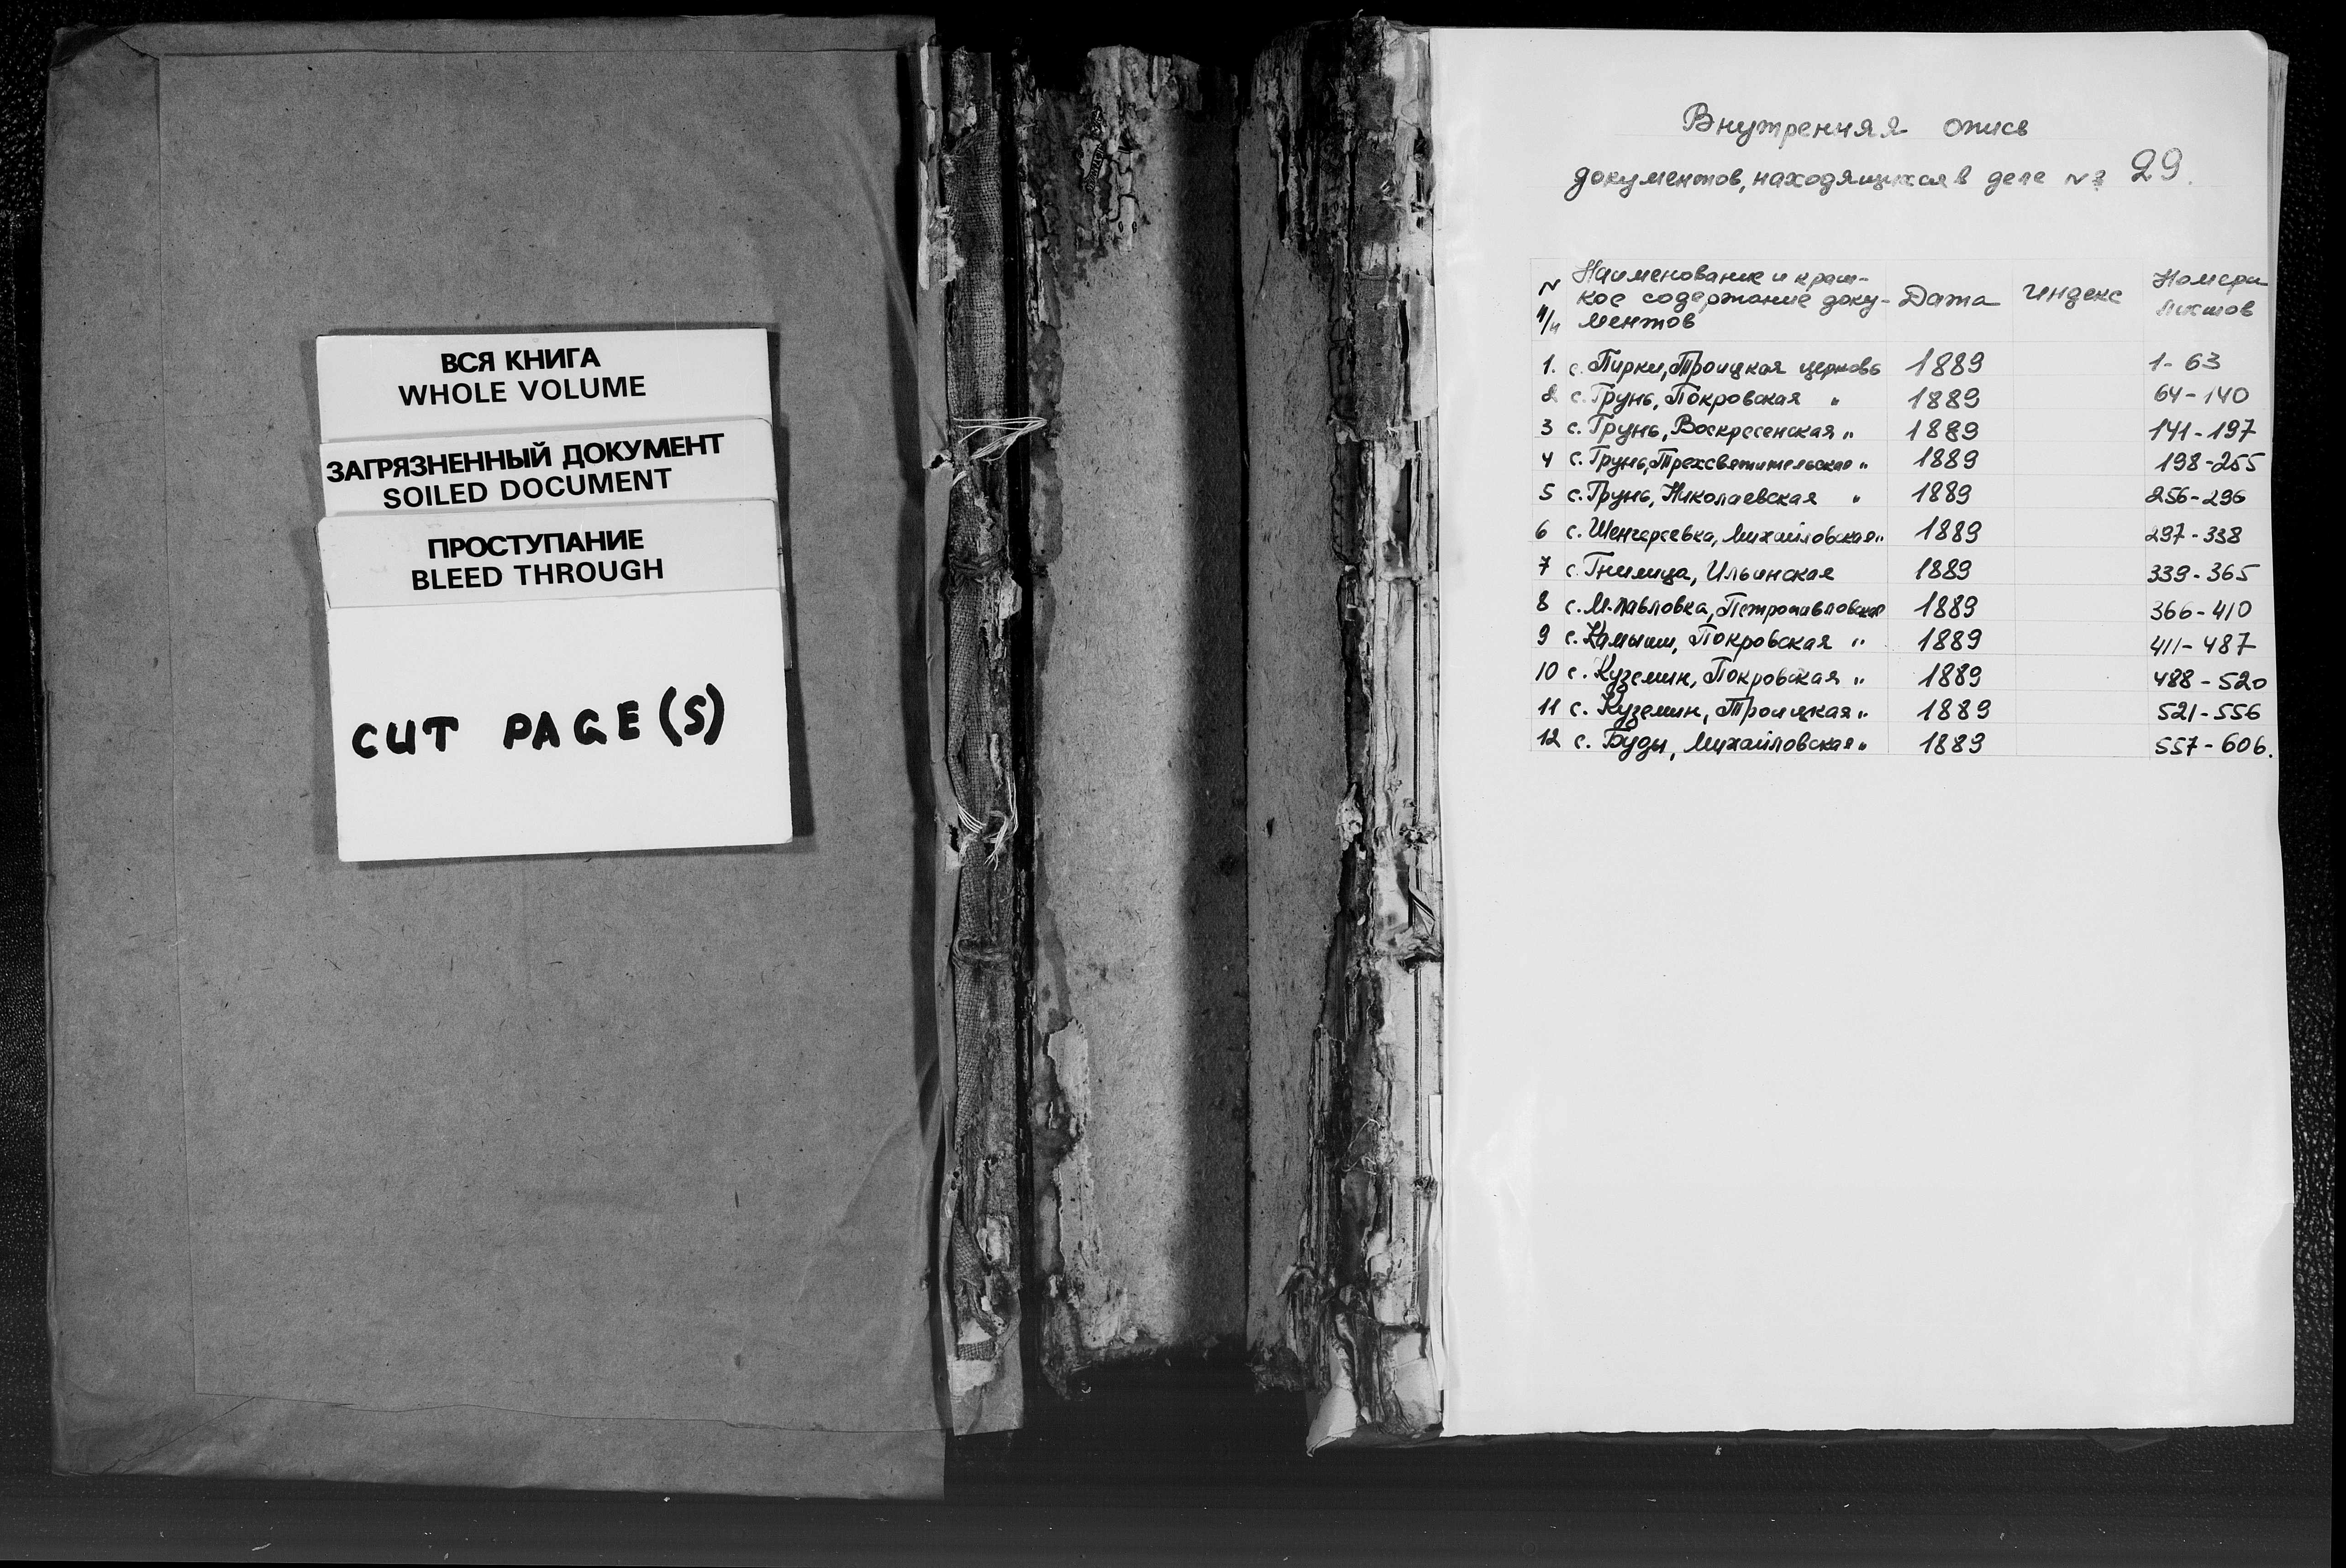 ВСЯ КНИГА
WHOLE VOLUME
ЗАГРЯЗНЕННЫЙ ДОКУМЕНТ
SOILED DOCUMENT
ПРОСТУПАНИЕ
BLEED THROUGH
CUT PAGE(S)
Внутренняя опись
документов, находящихся в деле № 29.
N п/п Наименование и краткое содержание документов Дата Индекс Номера листов
1. с. Пирки, Троицкая церковь 1889 1-63
2 с. Грунь, Покровская " 1889 64-140
3 с. Грунь, Воскресенская " 1889 141-197
4 с. Грунь, Трехсвятительская " 1889 198-255
5 с. Грунь, Николаевская " 1889 256-296
6 с. Шенгереевка, Михайловская " 1889 297-338
7 с. Гнилица, Ильинская 1889 339-365
8 с. М.Павловка, Петропавловская 1889 366-410
9 с. Камыши, Покровская " 1889 411-487
10 с. Куземин, Покровская " 1889 488-520
11 с. Куземин, Троицкая " 1889 521-556
12 с. Буды, Михайловская " 1889 557-606.